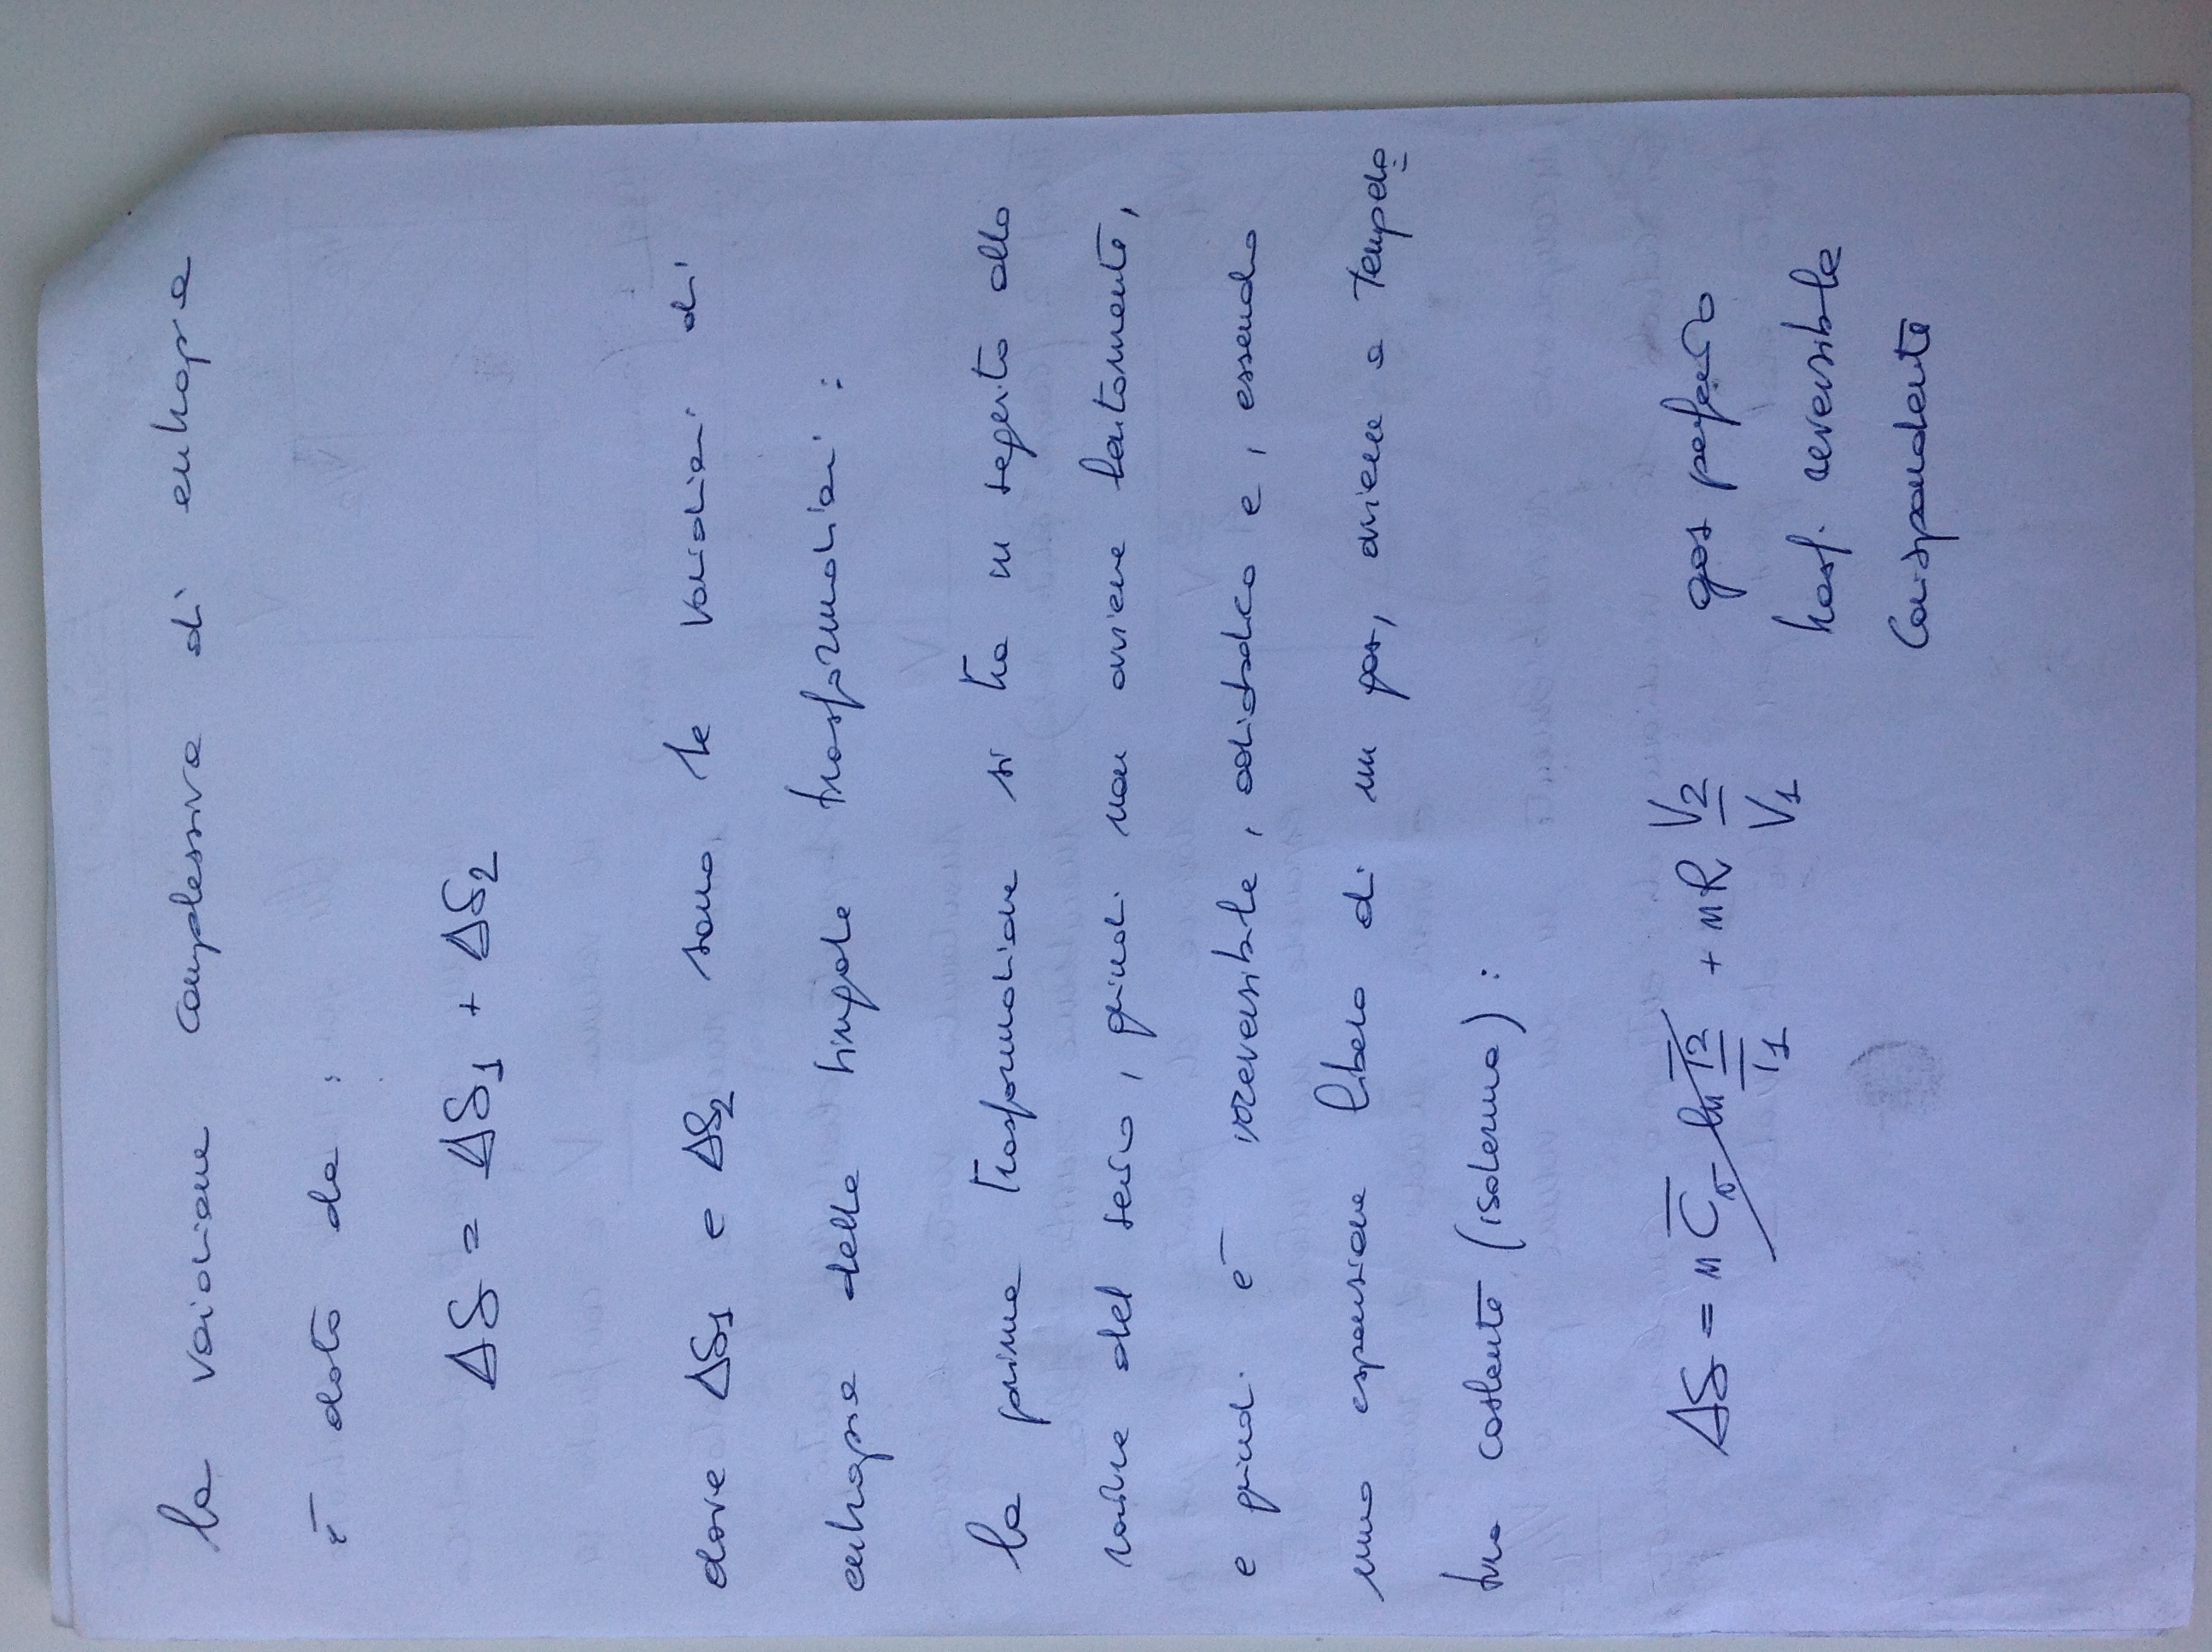 la variazione complessiva di entropia
è data da :
ΔS = ΔS1 + ΔS2
dove ΔS1 e ΔS2 sono le variazioni di
entropia delle singole trasformazioni :
la prima trasformazione si ha in seguito alla
del setto, quindi non avviene lentamente,
e quindi è irreversibile, adiabatica e, essendo
una espansione libera di un gas, avviene a tempera
tura costante (isoterma) :
ΔS = n C̅v ln T2/T1 + nR V2/V1 gas perfetto
trasf. reversibile
corrispondente